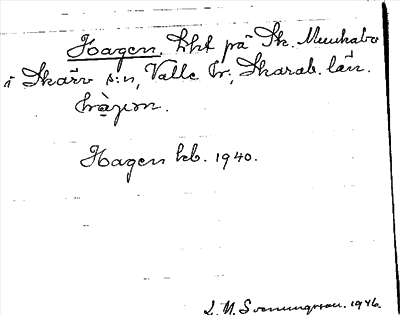 Hagen. tht på Sk. Munkabo
i Skärv s:n, Valle hr; Skarab. län.
hàgεn.
Hagen kb. 1940.
L. M. Svenungsson. 1946.